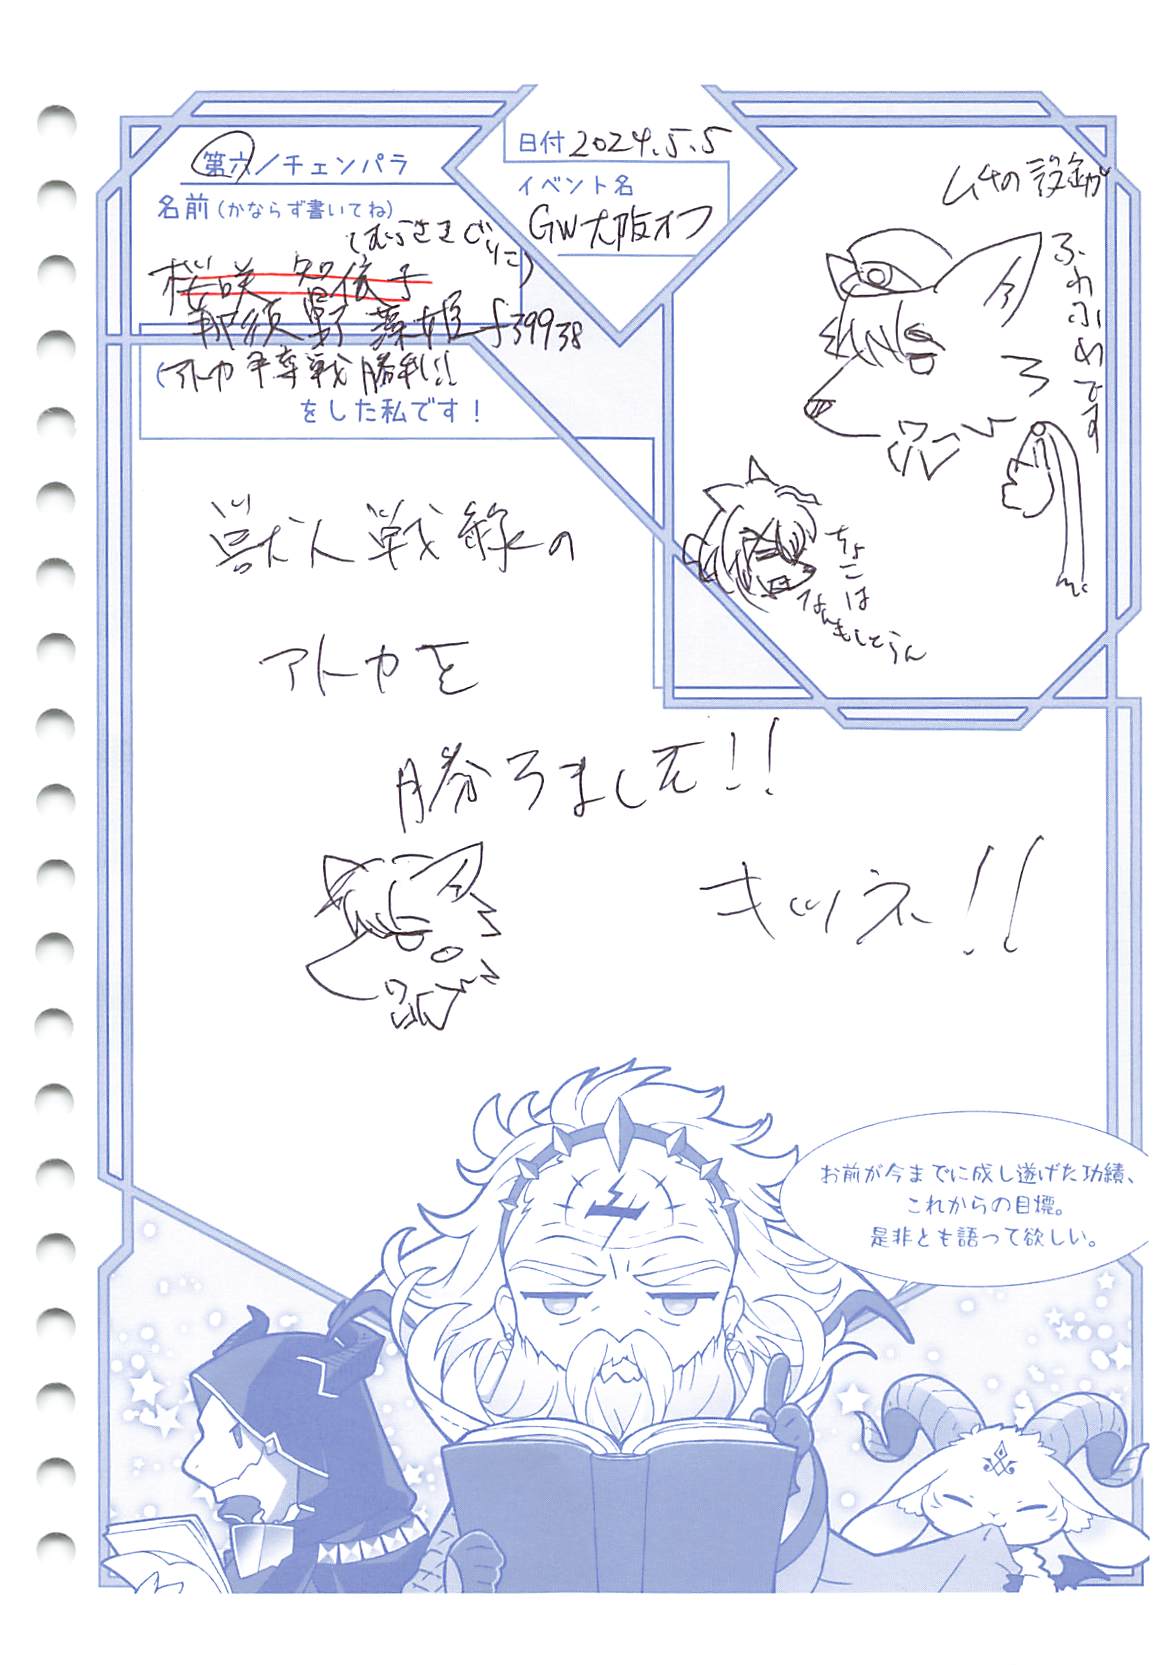 第六/チェンパラ
名前(かならず書いてね)
(むらさきぐりこ)
桜咲 智依子
那須野 藻姫 f39938
(アトカ争奪戦勝利!!
をした私です!
日付 2024.5.5
イベント名
GW大阪オフ
ふわふめです
ちょこは
なんもしとらん
獣人戦録の
アトカを
勝ろました!!
キツネ!!
お前が今までに成し遂げた功績、
これからの目標。
是非とも語って欲しい。